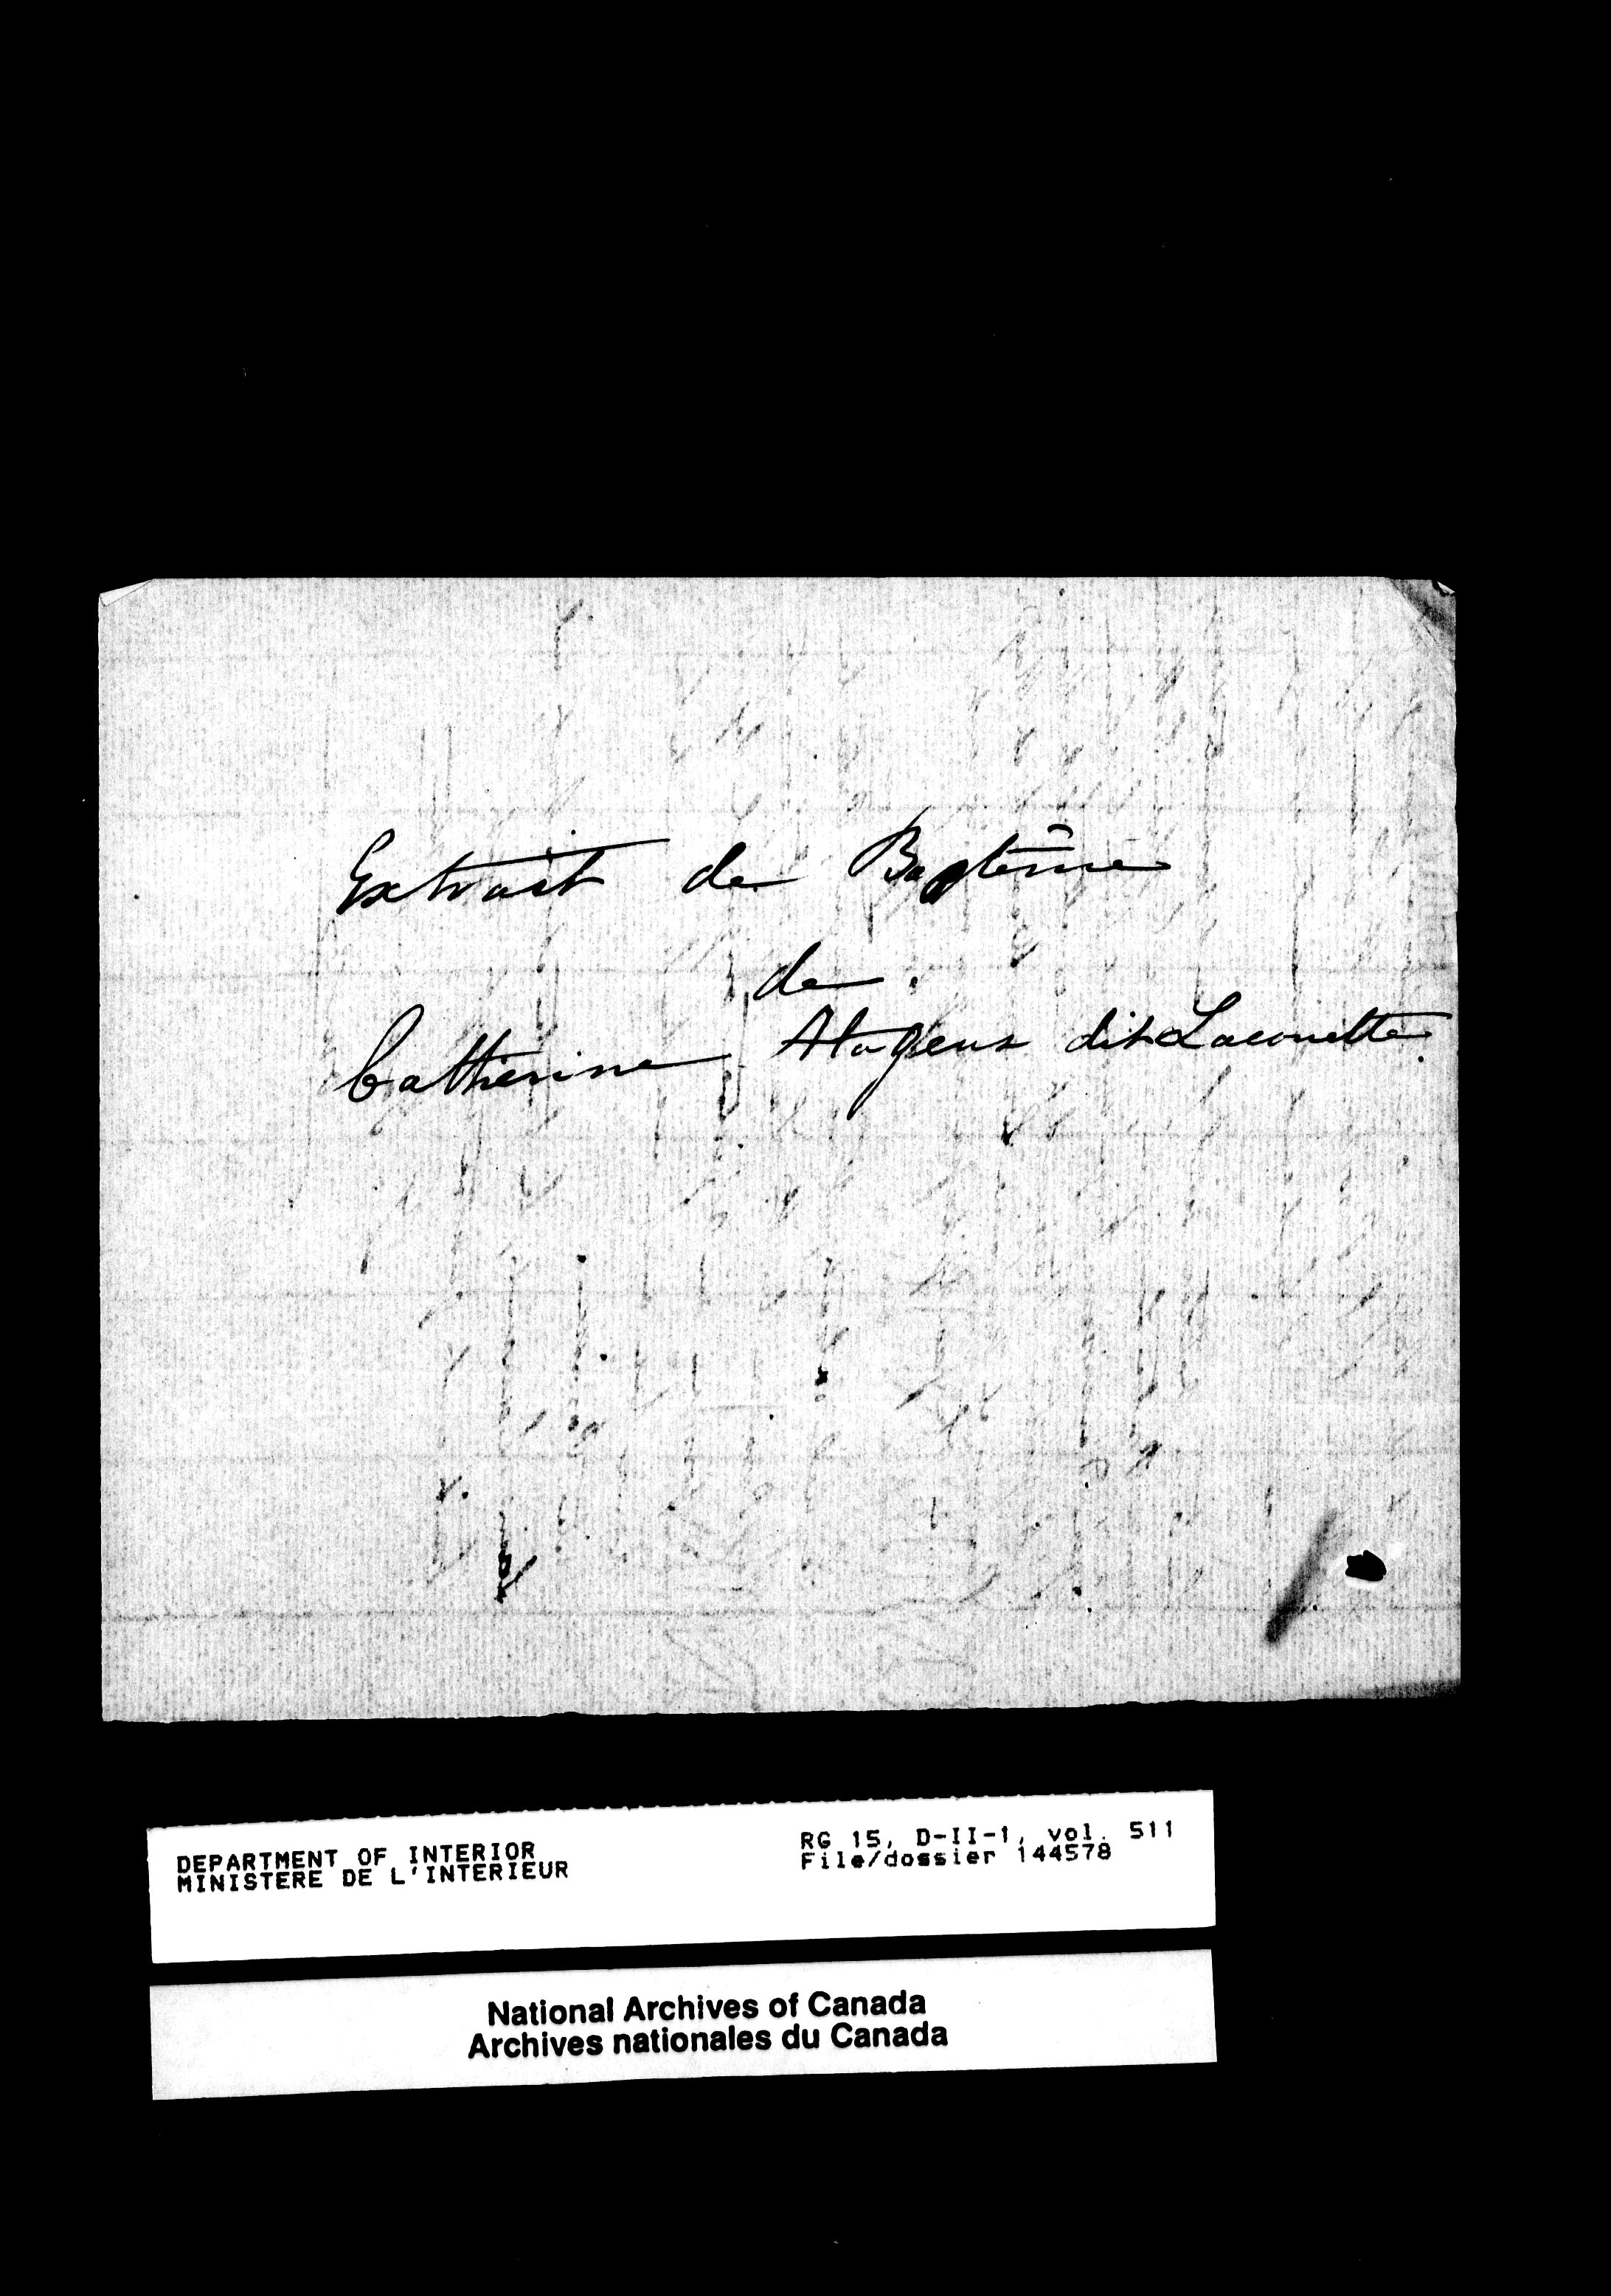 Extrait de Baptême
de
Catherine Atageus dit Lacouette
DEPARTMENT OF INTERIOR
MINISTERE DE L'INTERIEUR
RG 15, D-II-1, vol. 511
File/dossier 144578
National Archives of Canada
Archives nationales du Canada